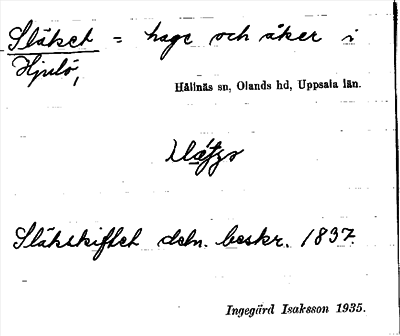 Släket = hage och åker i
Hjulö,
Hållnäs sn, Olands hd, Uppsala län.
Släkskiftet dsbn. beskr. 1837.
Ingegärd Isaksson 1935.